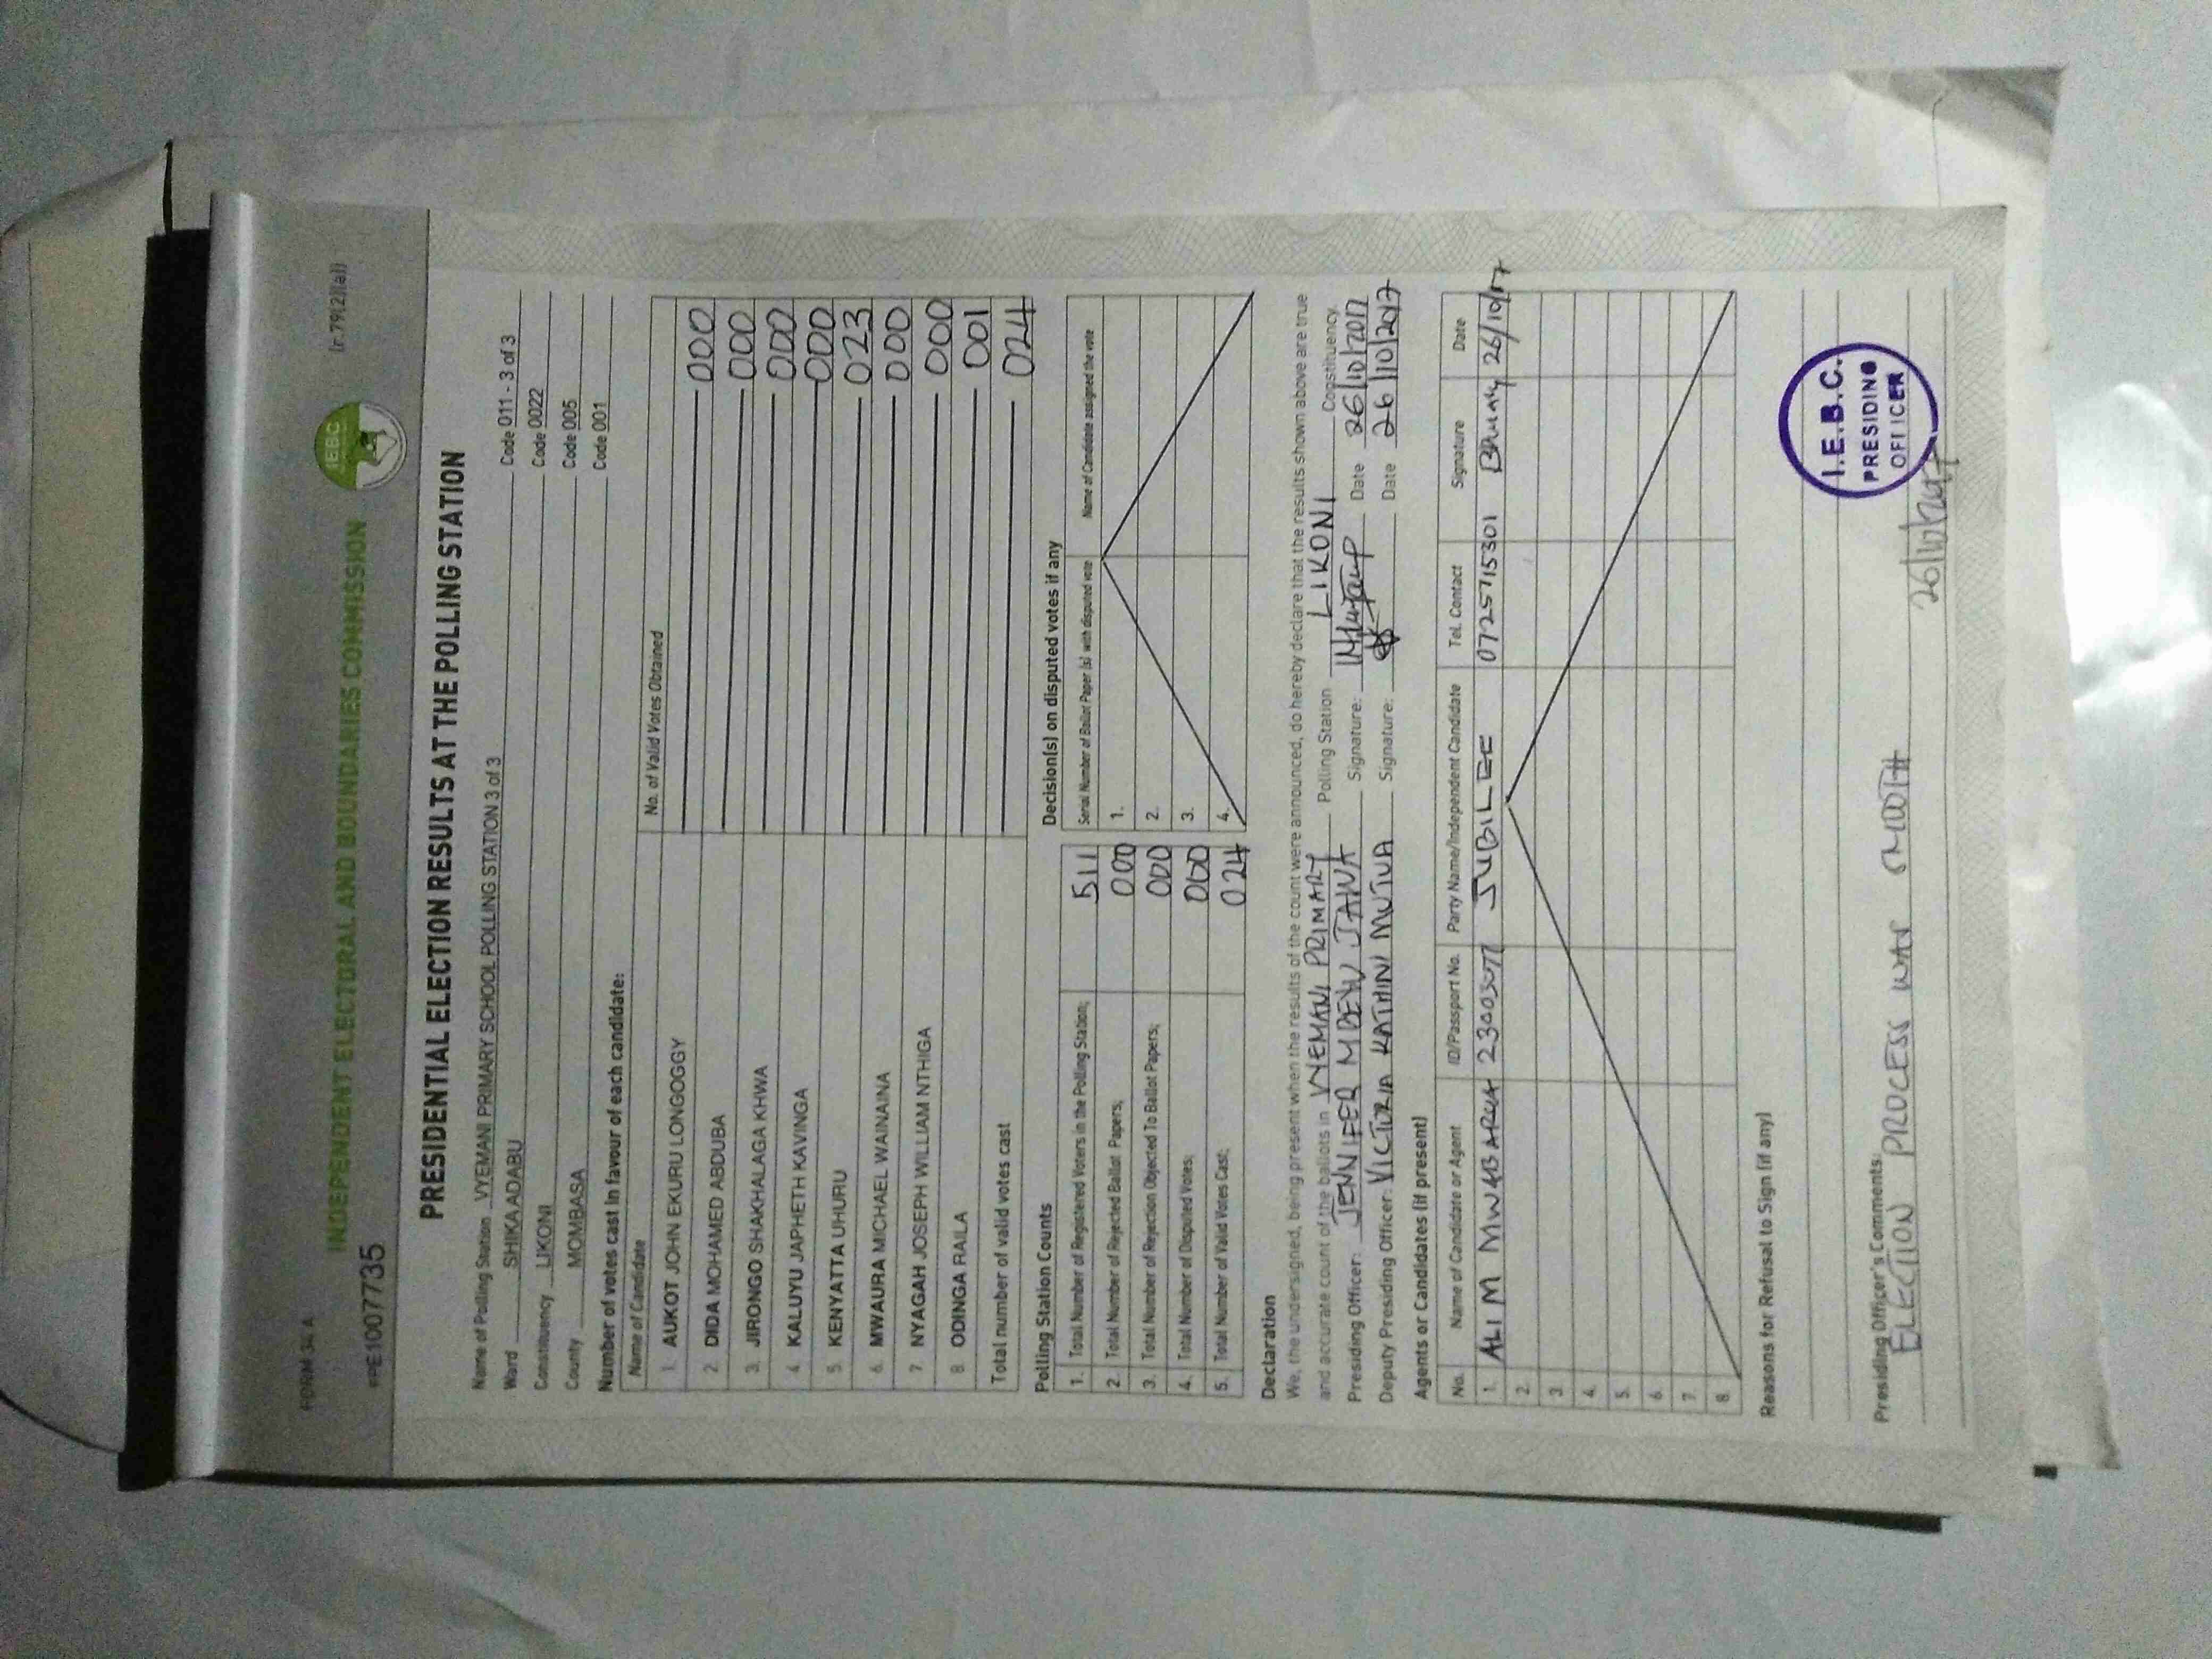 FORM 34 A (r.79(2)(a))
IEBC
INDEPENDENT ELECTORAL AND BOUNDARIES COMMISSION
PPE10077735
PRESIDENTIAL ELECTION RESULTS AT THE POLLING STATION
Name of Polling Station VYEMANI PRIMARY SCHOOL POLLING STATION 3 of 3 Code 011 - 3 of 3
Ward SHIKA ADABU Code 0022
Constituency LIKONI Code 005
County MOMBASA Code 001
Number of votes cast in favour of each candidate:
Name of Candidate No. of Valid Votes Obtained
1. AUKOT JOHN EKURU LONGOGGY 000
2. DIDA MOHAMED ABDUBA 000
3. JIRONGO SHAKHALAGA KHWA 000
4. KALUYU JAPHETH KAVINGA 000
5. KENYATTA UHURU 023
6. MWAURA MICHAEL WAINAINA 000
7. NYAGAH JOSEPH WILLIAM NTHIGA 000
8. ODINGA RAILA 001
Total number of valid votes cast 024
Polling Station Counts
1. Total Number of Registered Voters in the Polling Station; 511
2. Total Number of Rejected Ballot Papers; 000
3. Total Number of Rejection Objected To Ballot Papers; 000
4. Total Number of Disputed Votes; 000
5. Total Number of Valid Votes Cast; 024
Decision(s) on disputed votes if any
Serial Number of Ballot Paper (s) with disputed vote Name of Candidate assigned the vote
1.
2.
3.
4.
Declaration
We, the undersigned, being present when the results of the count were announced, do hereby declare that the results shown above are true
and accurate count of the ballots in VYEMANI PRIMARY Polling Station LIKONI Constituency.
Presiding Officer: JENNIFER MBEYU JAWA Signature: Date 26/10/2017
Deputy Presiding Officer: VICTORIA KATHINI MUTUA Signature: Date 26/10/2017
Agents or Candidates (if present)
No. Name of Candidate or Agent ID/Passport No. Party Name/Independent Candidate Tel. Contact Signature Date
1. ALI M JUBILEE 0725715301 26/10/17
2.
3.
4.
5.
6.
7.
8.
Reasons for Refusal to Sign (if any)
Presiding Officer's Comments:
ELECTION PROCESS WAS SMOOTH
I.E.B.C.
PRESIDING
OFFICER